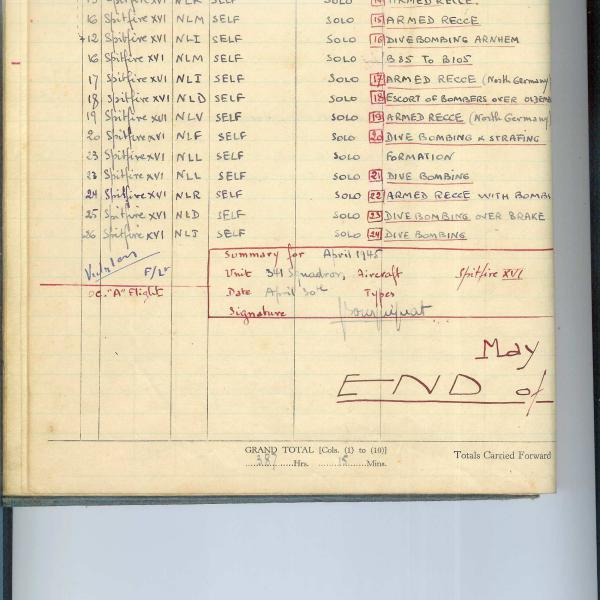 15 Spitfire XVI NLR SELF SOLO 14 ARMED RECCE.
16 Spitfire XVI NLM SELF SOLO 15 ARMED RECCE
12 Spitfire XVI NLI SELF SOLO 16 DIVE BOMBING ARNHEM
16 Spitfire XVI NLM SELF SOLO B85 TO B105
17 Spitfire XVI NLI SELF SOLO 17 ARMED RECCE (North Germany
18 Spitfire XVI NLD SELF SOLO 18 ESCORT OF BOMBERS OVER
19 Spitfire XVI NLV SELF SOLO 19 ARMED RECCE (North Germany)
20 Spitfire XVI NLF SELF SOLO 20 DIVE BOMBING & STRAFING
23 Spitfire XVI NLL SELF SOLO FORMATION
23 Spitfire XVI NLL SELF SOLO 21 DIVE BOMBING
24 Spitfire XVI NLR SELF SOLO 22 ARMED RECCE WITH BOMBS
25 Spitfire XVI NLD SELF SOLO 23 DIVE BOMBING OVER BRAKE
26 Spitfire XVI NLI SELF SOLO 24 DIVE BOMBING
F/Lt
OC. "A" Flight
Summary for April 1945
Unit 341 Squadron, Aircraft Spitfire XVI
Date April 30th Types
Signature
May
END of
GRAND TOTAL [Cols. (1) to (10)]
387 Hrs. 15 Mins.
Totals Carried Forward